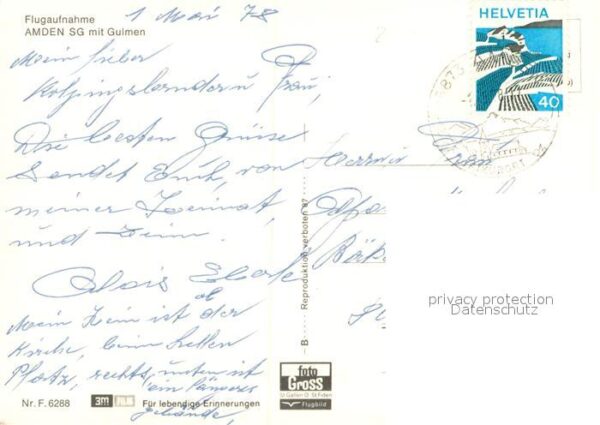 Flugaufnahme
AMDEN SG mit Gulmen
1 Mai 78
Mein lieber
Kolpingsbruder u Frau,
Die besten Grüsse
sendet Euch, von
meiner Heimat,
und Heim.
Alois
Mein Heim ist ob der
Kirche, beim hellen
Platz, rechts, unten ist
ein längeres
Gebäude,
Nr. F. 6288
3m
Für lebendige Erinnerungen
HELVETIA
40
Herrn u
Frau
B
Reproduktion verboten 87
foto
GROSS
St Gallen O. St Fiden
Flugbild
privacy protection
Datenschutz